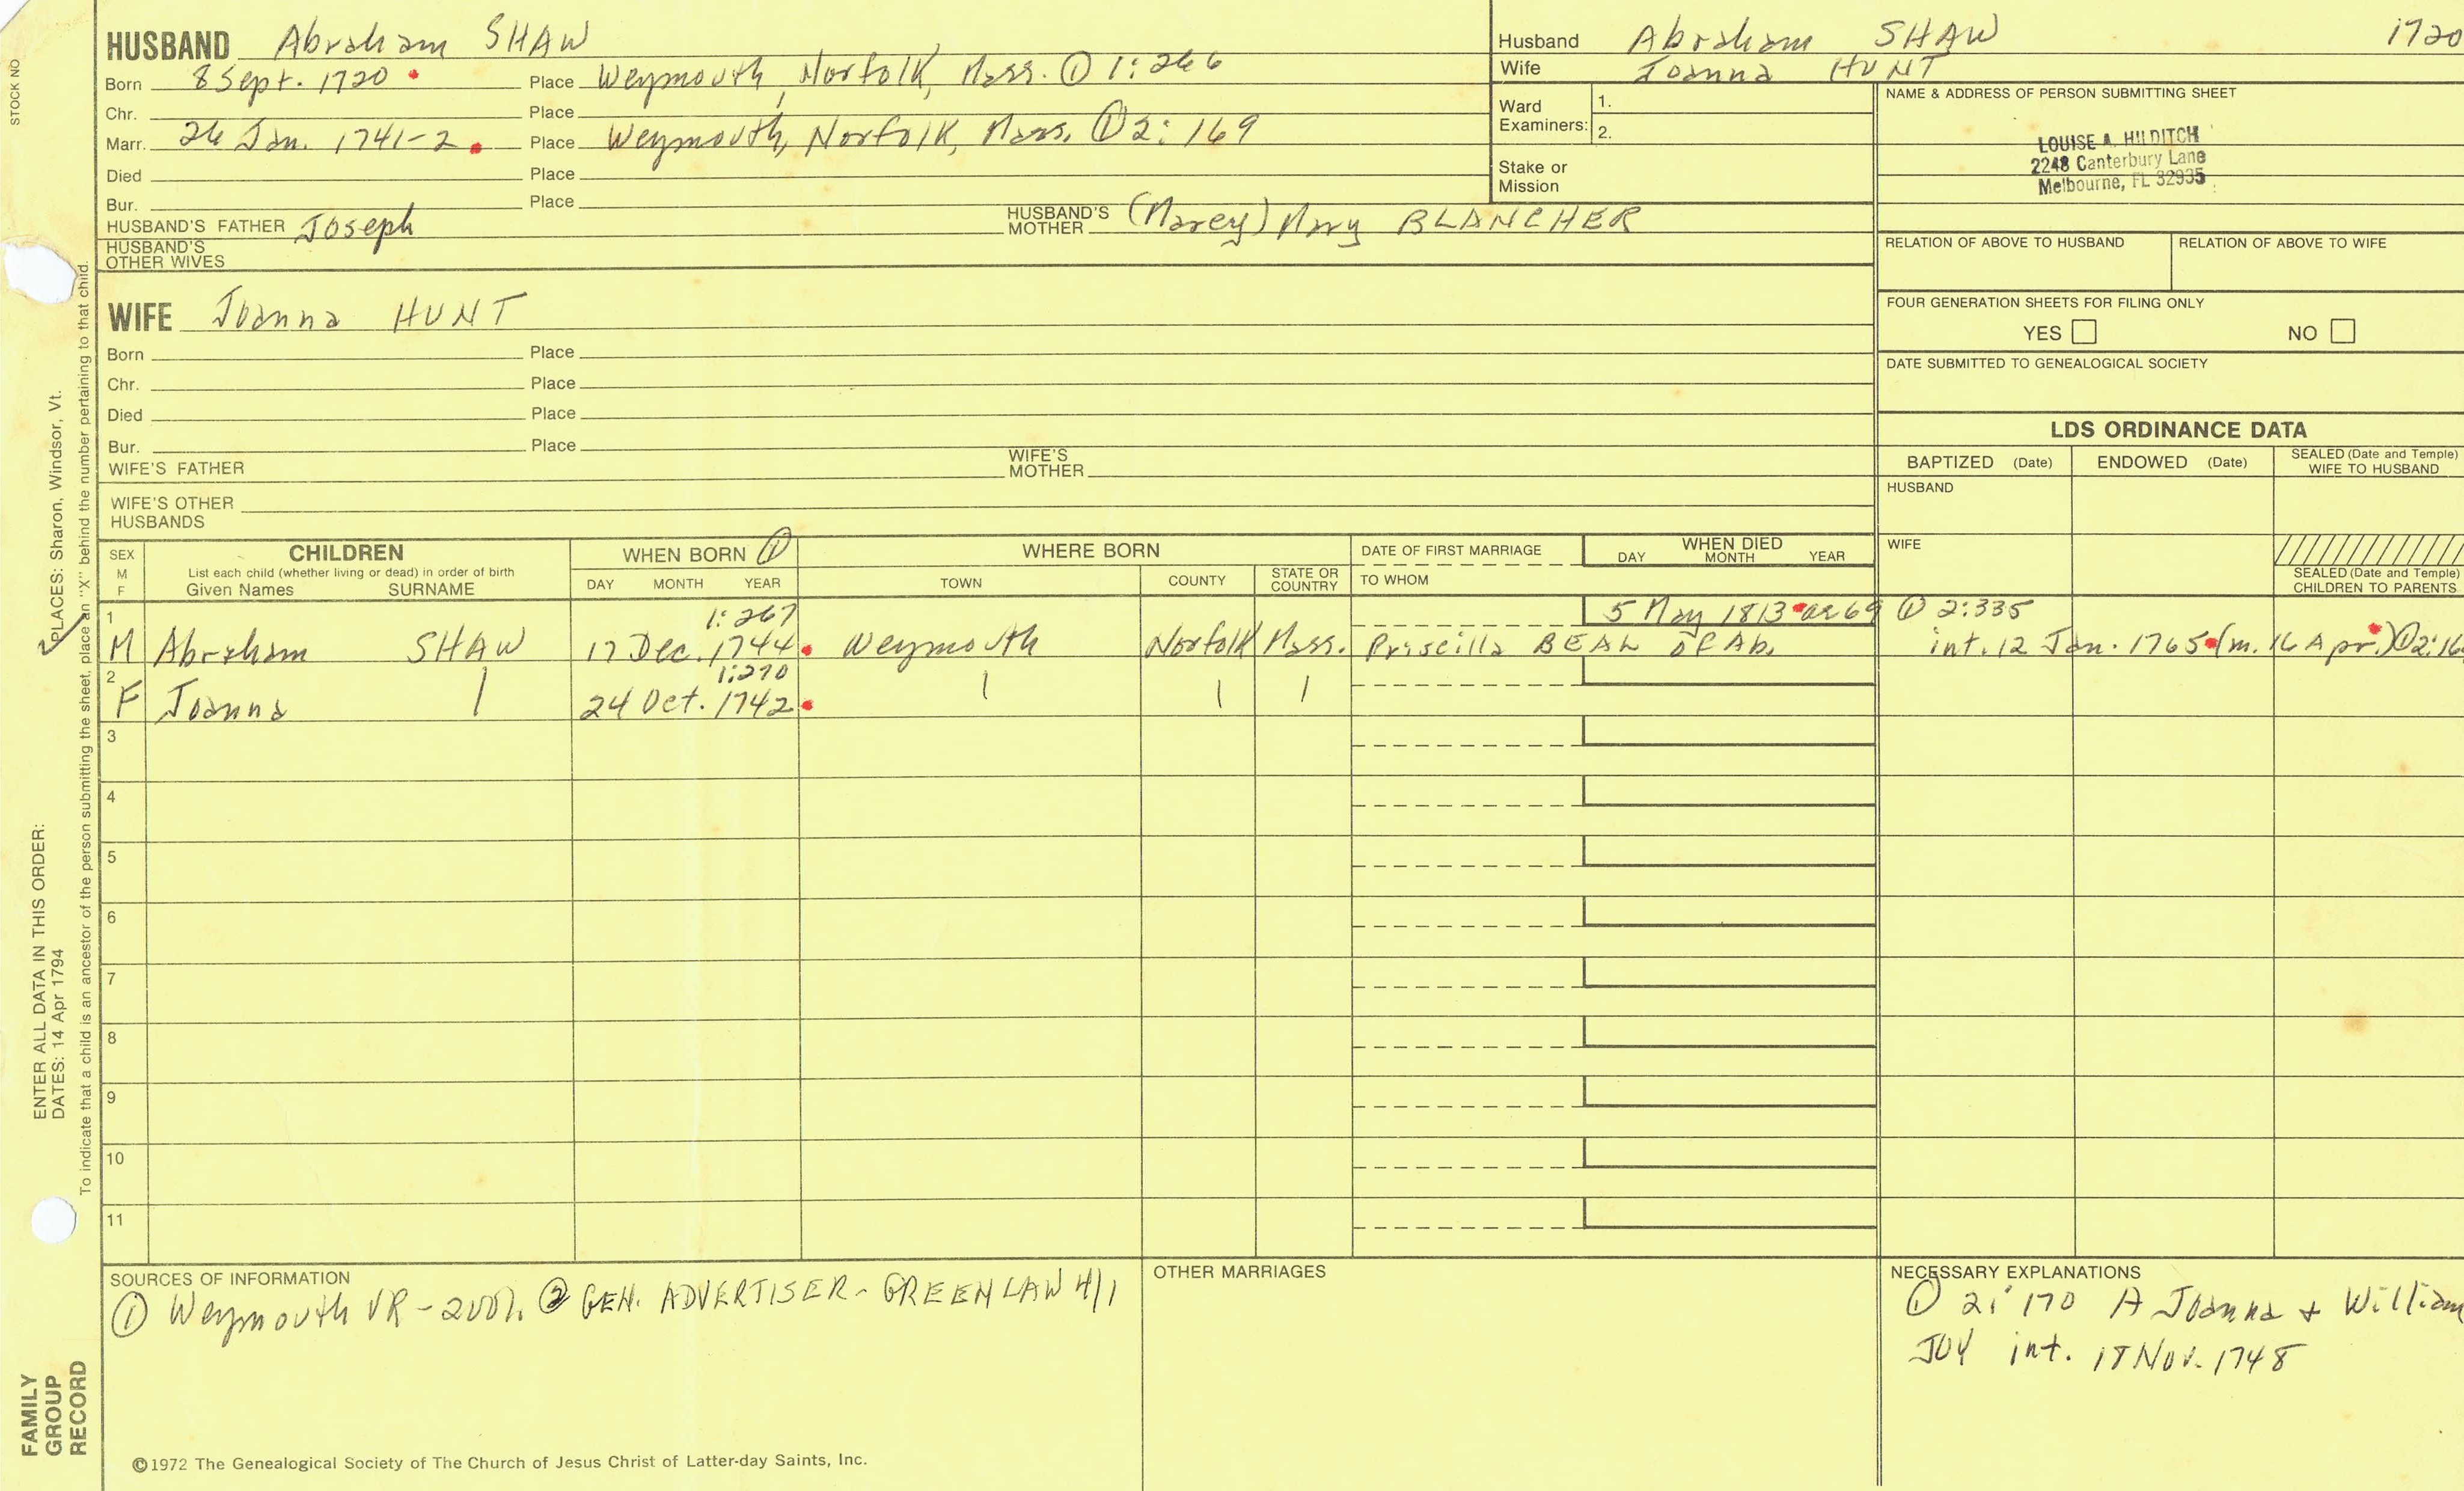 STOCK NO
PLACES: Sharon, Windsor, Vt.
To indicate that a child is an ancestor of the person submitting the sheet, place an "X" behind the number pertaining to that child.
ENTER ALL DATA IN THIS ORDER:
DATES: 14 Apr 1794
FAMILY
GROUP
RECORD
HUSBAND Abraham SHAW
Born 8 Sept. 1720 Place Weymouth, Norfolk, Mass. ① 1:266
Chr. Place
Marr. 26 Jan. 1741-2 Place Weymouth, Norfolk, Mass. ① 2:169
Died Place
Bur. Place
HUSBAND'S FATHER Joseph HUSBAND'S MOTHER (Marey) Mary BLANCHER
HUSBAND'S OTHER WIVES
WIFE Joanna HUNT
Born Place
Chr. Place
Died Place
Bur. Place
WIFE'S FATHER WIFE'S MOTHER
WIFE'S OTHER HUSBANDS
Husband Abraham SHAW 1720
Wife Joanna HUNT
Ward Examiners: 1.
2.
Stake or Mission
NAME & ADDRESS OF PERSON SUBMITTING SHEET
LOUISE A. HILDITCH
2248 Canterbury Lane
Melbourne, FL 32935
RELATION OF ABOVE TO HUSBAND RELATION OF ABOVE TO WIFE
FOUR GENERATION SHEETS FOR FILING ONLY
YES NO
DATE SUBMITTED TO GENEALOGICAL SOCIETY
LDS ORDINANCE DATA
BAPTIZED (Date) ENDOWED (Date) SEALED (Date and Temple) WIFE TO HUSBAND
HUSBAND
WIFE
SEALED (Date and Temple) CHILDREN TO PARENTS
SEX M F CHILDREN WHEN BORN ① WHERE BORN DATE OF FIRST MARRIAGE WHEN DIED
List each child (whether living or dead) in order of birth
Given Names SURNAME DAY MONTH YEAR TOWN COUNTY STATE OR COUNTRY TO WHOM DAY MONTH YEAR
1 1:267 5 May 1813 ae 69 ① 2:335
M Abraham SHAW 17 Dec. 1744 Weymouth Norfolk Mass. Priscilla BEAL of Ab. int. 12 Jan. 1765 (m. 16 Apr.) ① 2:16
2 1:270
F Joanna | 24 Oct. 1742 | | |
3
4
5
6
7
8
9
10
11
SOURCES OF INFORMATION
① Weymouth VR - 2vol. ② GEN. ADVERTISER - GREENLAW 4/1
OTHER MARRIAGES
NECESSARY EXPLANATIONS
① 2:170 A Joanna + William
JOY int. 18 Nov. 1748
©1972 The Genealogical Society of The Church of Jesus Christ of Latter-day Saints, Inc.